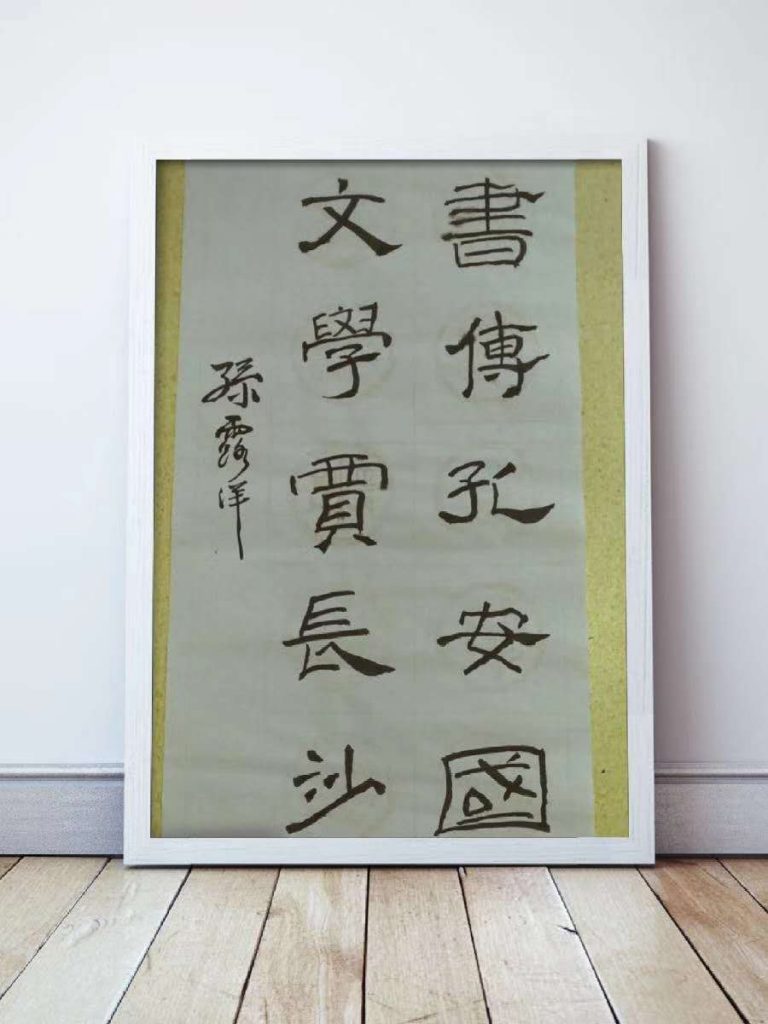 書傳孔安國
文學賈長沙
孫露洋